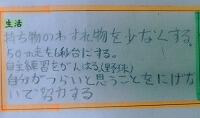 生活
持ち物のわすれ物を少なくする。
50m走を6秒台にする。
自主練習をがんばる(野球)
自分がつらいと思うことをにげな
いで努力する